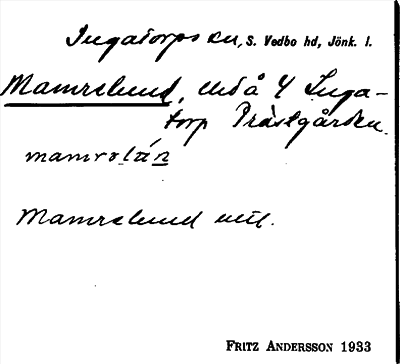 Ingatorps sn, S. Vedbo hd, Jönk. l.
Mamrelund, utså Y Inga-
torp Prästgården.
mamrəlún
Mamrelund
FRITZ ANDERSSON 1933